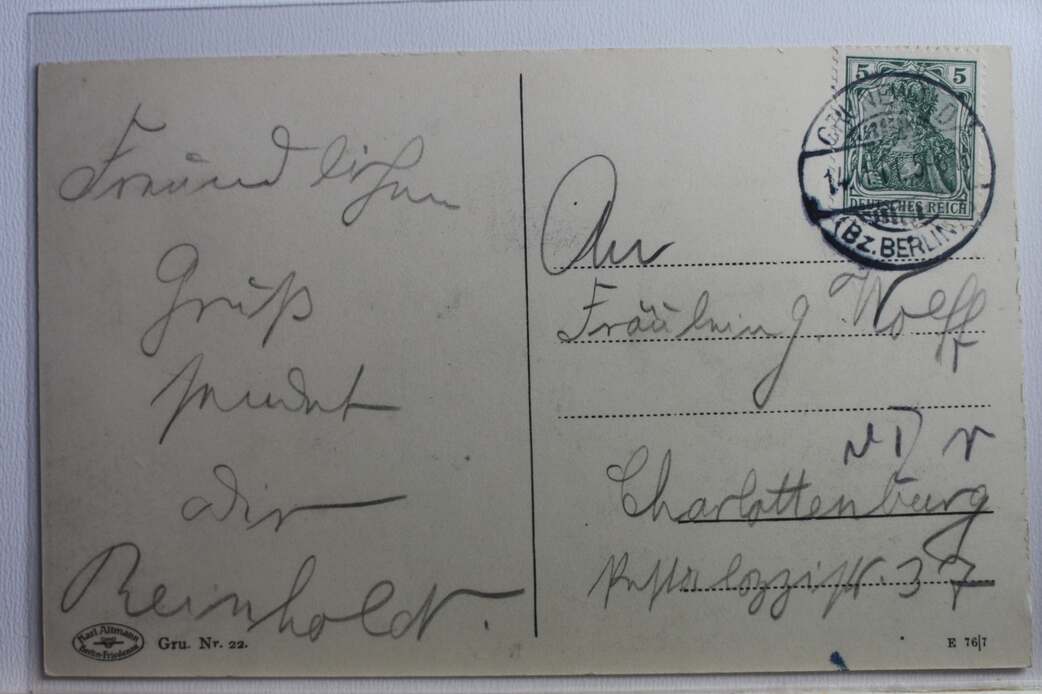 Freundlichen
Gruß
sendet
Dir
Reinholdt.
5 5
DEUTSCHES REICH
(BZ. BERLIN)
An
Fräulein J. Wolff
Charlottenburg
Pestalozzistr. 37
Karl Altmann
Berlin-Friedenau
Gru. Nr. 22.
E 76/7